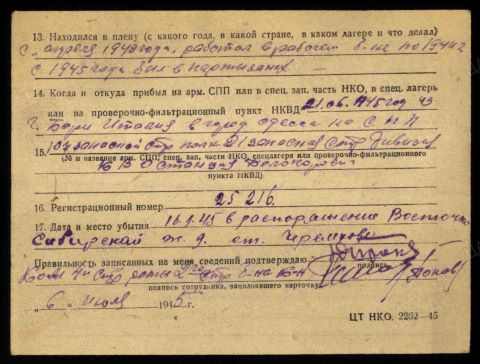 13. Находился в плену (с какого года, в какой стране, в каком лагере и что делал)
С апреля 1942 года, работал в рабочем б-не по 1944 г
с 1945 года был в партизанах
14. Когда и откуда прибыл на арм. СПП или в спец. зап. часть НКО, в спец. лагерь
или на проверочно-фильтрационный пункт НКВД 21.06.1945 год из
г. Бари Италия в город Одесса на
15. запасной стр полк запасная стр дивизия
(№ и название арм. СПП, спец. зап. части НКО, спецлагеря или проверочно-фильтрационного
Станция
пункта НКВД)
16. Регистрационный номер 25216.
17. Дата и место убытия в распоряжение Восточно
Сибирской ж. д. ст. Черемхово
Правильность записанных на меня сведений подтверждаю
подпись
Ком стр роты стр б-на
подпись сотрудника, заполнявшего карточку
„6" июля 1945 г.
ЦТ НКО. 2262—45